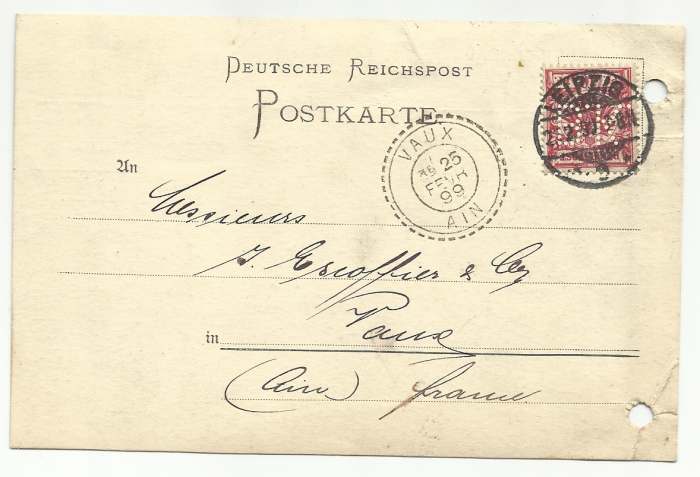 DEUTSCHE REICHSPOST
POSTKARTE
LEIPZIG
VAUX
25
FEVR
99
AIN
An
Messieurs
J. Escoffier & Cey
Vaux
in
(Ain) france